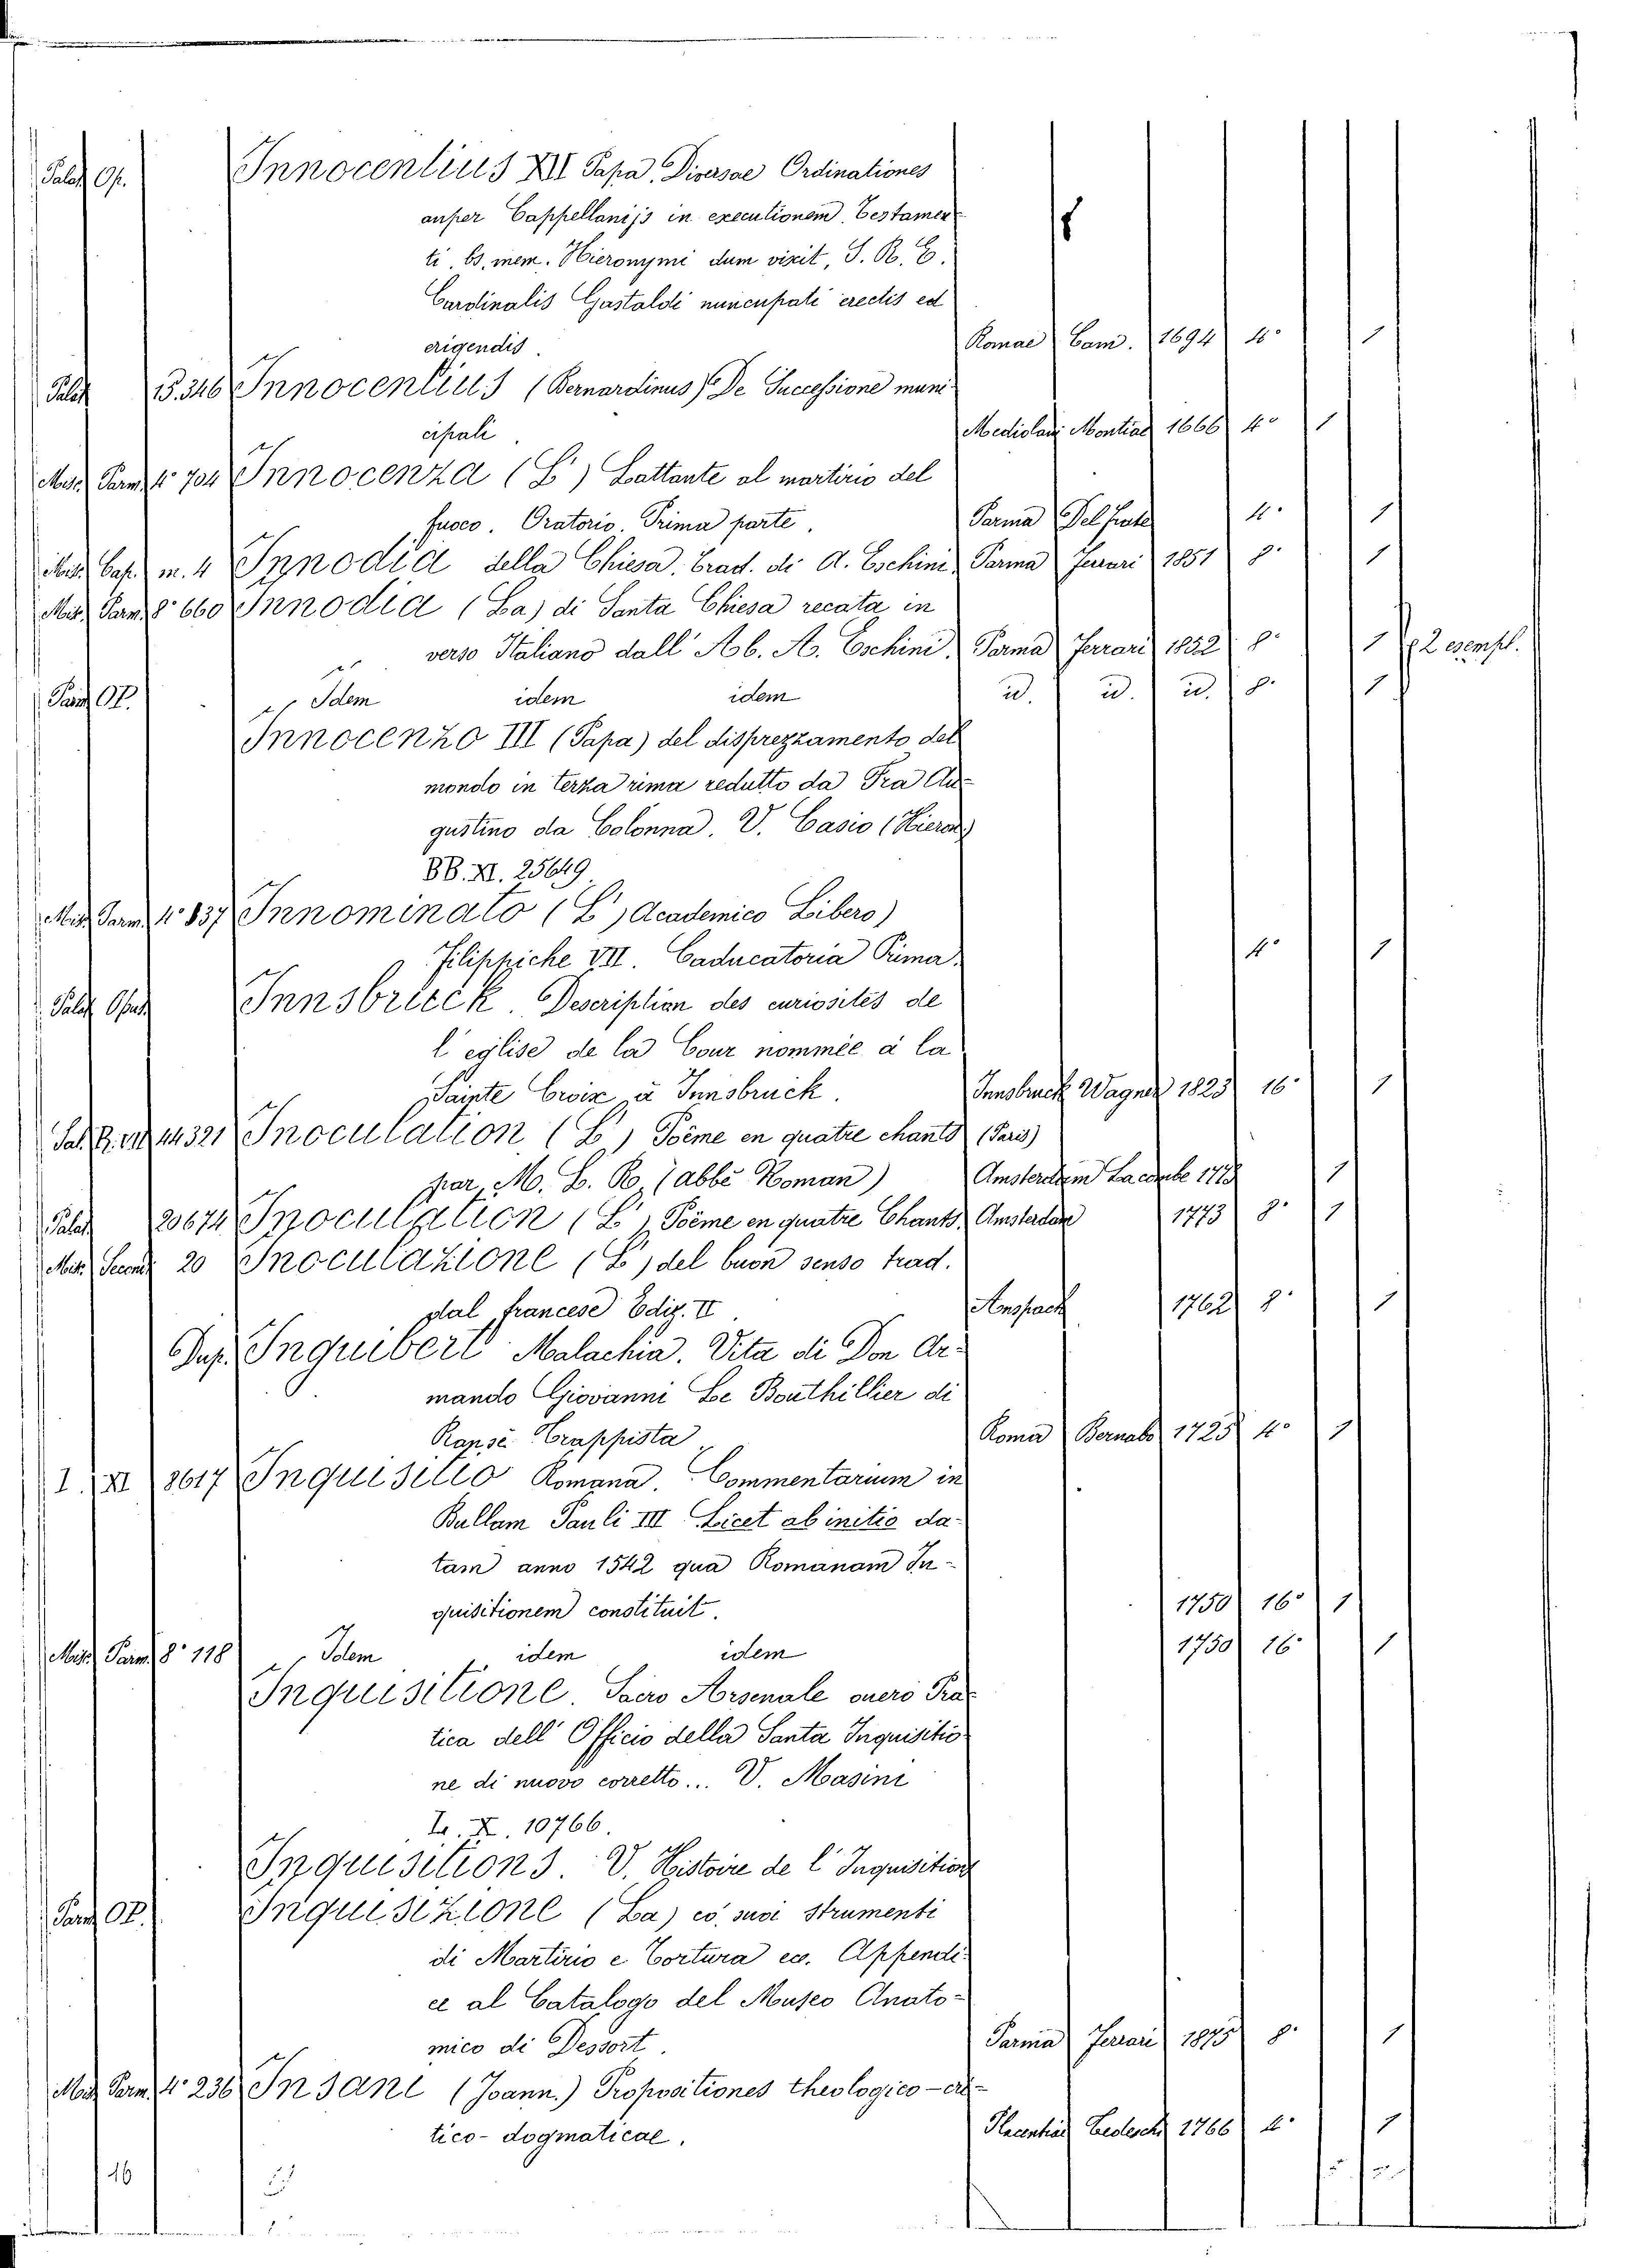 Palat. Op. Innocentius XII Papa, Diversae Ordinationes
super Cappellanijs in executionem Testamen
ti b. mem. Hieronymi dum vixit, S. R. E.
Cardinalis Gastaldi nuncupati erectis ed
erigendis. Romae Cam. 1694 4° 1
Palat. 15.346 Innocentius (Bernardinus) De Successione muni
cipali Mediolani Montiae 1666 4° 1
Misc. Parm. 4° 704 Innocenza (L') Lattante al martirio del
fuoco. Oratorio. Prima parte. Parma Del Prato 4° 1
Misc. Cap. m. 4 Innodia della Chiesa. Trad. di A. Eschini Parma Ferrari 1851 8° 1
Misc. Parm. 8° 660 Innodia (La) di Santa Chiesa recata in
verso Italiano dall' Ab. A. Eschini. Parma Ferrari 1852 8° 1 2 esempl.
Parm. OP. Idem idem idem id. id. id. 8° 1
Innocenzo III (Papa) del disprezzamento del
mondo in terza rima redutto da Fra Au-
gustino da Colonna. V. Casio (Hieron)
BB. XI. 25649
Misc. Parm. 4° 837 Innominato (L') Academico Libero)
Filippiche VII. Caducatoria Prima. 4° 1
Palat. Opus. Innsbruck. Description des curiosités de
l'eglise de la Cour nommée à la
Sainte Croix à Innsbruck. Innsbruck Wagner 1823 16° 1
14321 Inoculation (L') Poëme en quatre chants (Paris)
par M. L. R. (abbé Roman) Amsterdam Lacombe 1773 1
Palat. 20674 Inoculation (L') Poëme en quatre Chants. Amsterdam 1773 8° 1
Misc. 20 Inoculazione (L') del buon senso trad.
dal francese Ediz. II Anspach 1762 8° 1
Inguibert Malachia. Vita di Don Ar-
mando Giovanni Le Bouthillier di
Ransè Trappista Roma Bernabò 1725 4° 1
I. XI 8617 Inquisitio Romana. Commentarium in
Bullam Pauli III Licet ab initio da-
tam anno 1542 qua Romanam In-
quisitionem constituit. 1750 16° 1
Misc. Parm. 8° 118 Idem idem idem 1750 16° 1
Inquisitione. Sacro Arsenale overo Pra-
tica dell' Officio della Santa Inquisitio
ne di nuovo corretto... V. Masini
X. 10766.
Inquisitions. V. Histoire de l'Inquisition
Parm. OP. Inquisizione (La) co' suoi strumenti
di Martirio e Tortura ec. Appendi-
ce al Catalogo del Museo Anato-
mico di Dessort. Parma Ferrari 1875 8° 1
Misc. Parm. 4° 236 Insani (Joann.) Propositiones theologico-cri-
tico-dogmaticae. Placentiae Tedeschi 1766 4° 1
16